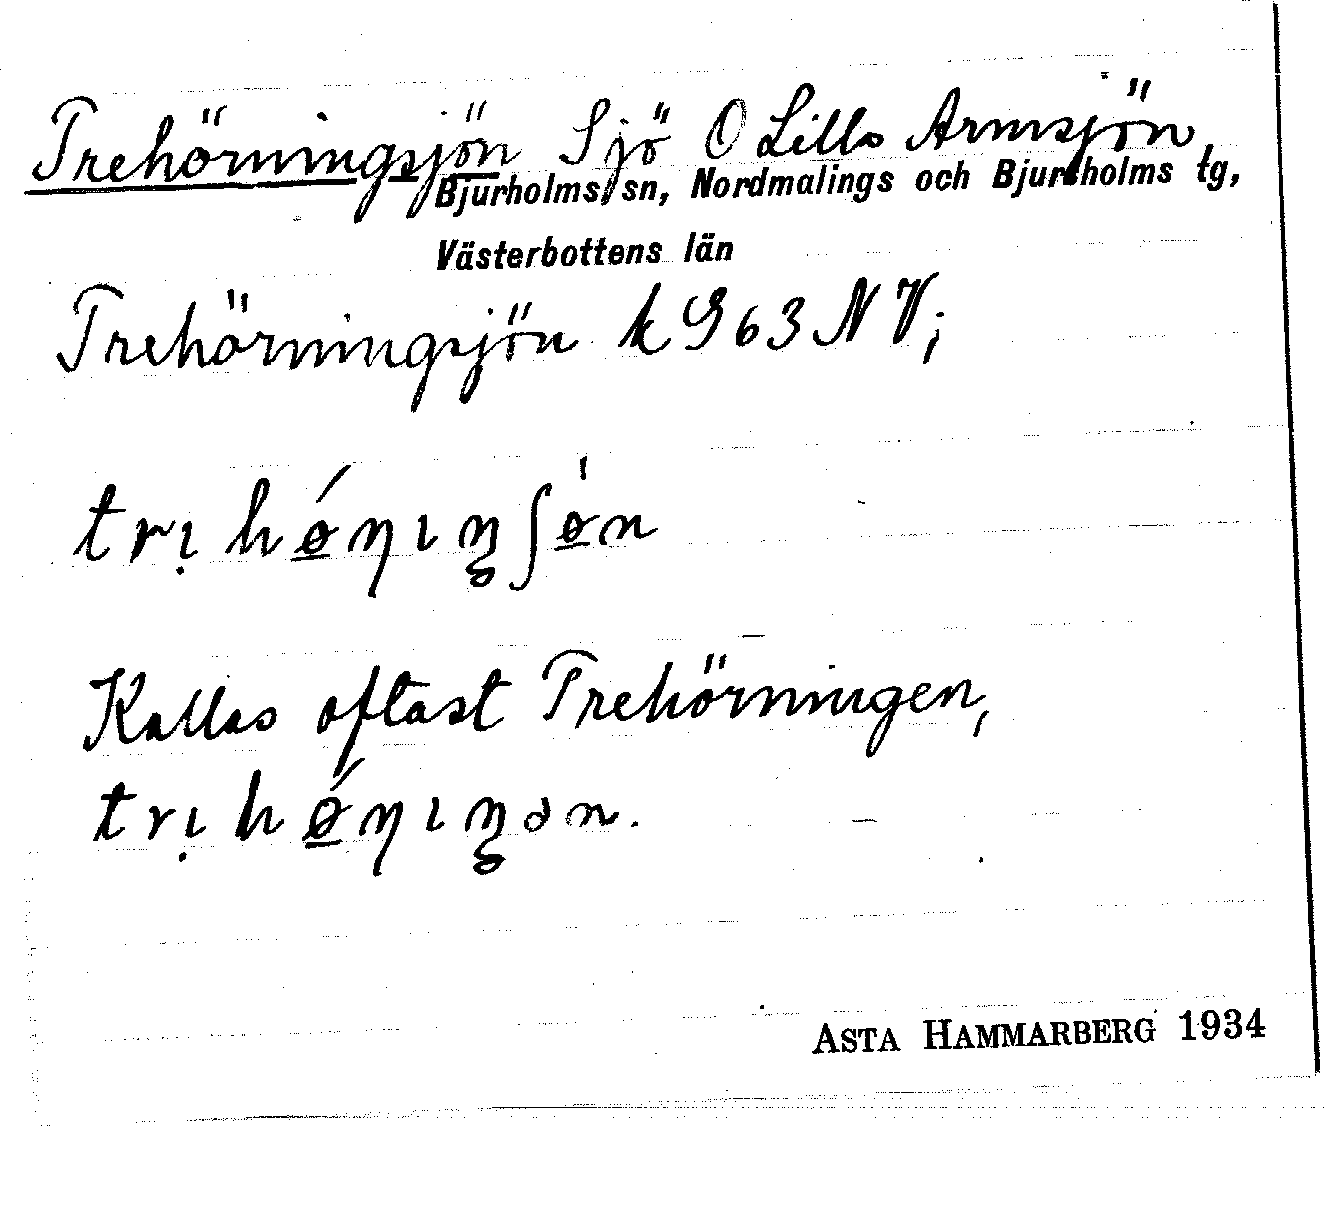 Trehörningsjön Sjö O Lilla Armsjön,
Bjurholms sn, Nordmalings och Bjurholms tg,
Västerbottens län
Trehörningsjön k G 63 NV;
trı̣hǿ̲ηıŋʃø̲̍n
Kallas oftast Trehörningen,
trı̣hǿ̲ηıŋən.
ASTA HAMMARBERG 1934